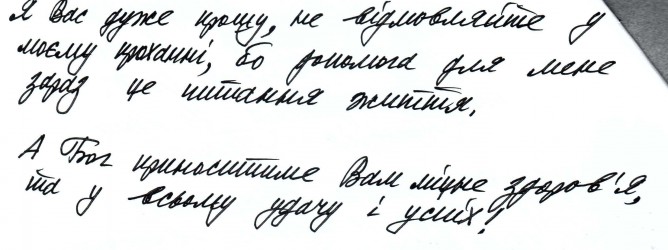 Я Вас дуже прошу, не відмовляйте у
моєму проханні, бо допомога для мене
зараз це питання життя.
А Бог приноситиме Вам міцне здоров'я,
та у всьому удачу і успіх!